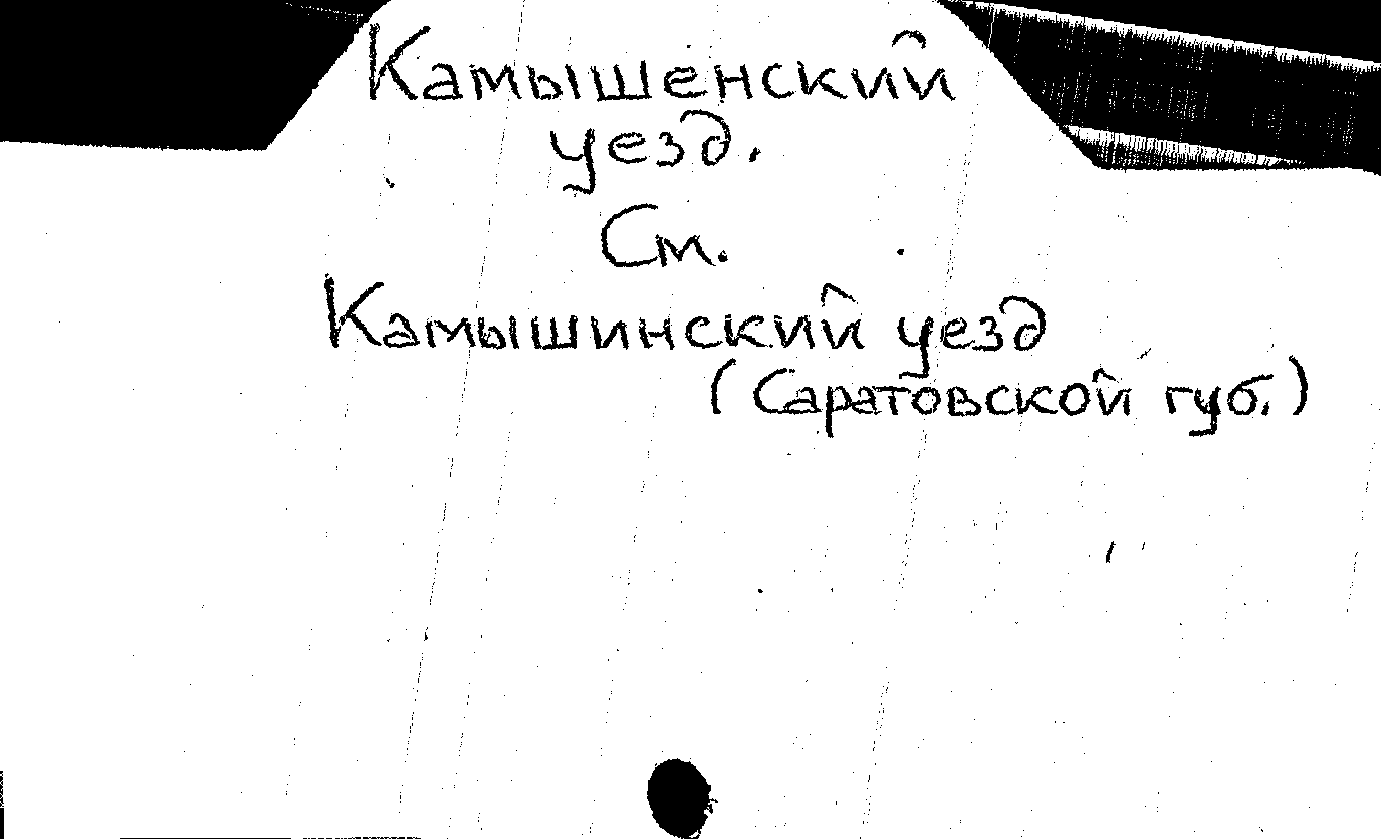 Камышенский
уезд.
См.
Камышинский уезд
(Саратовской губ.)